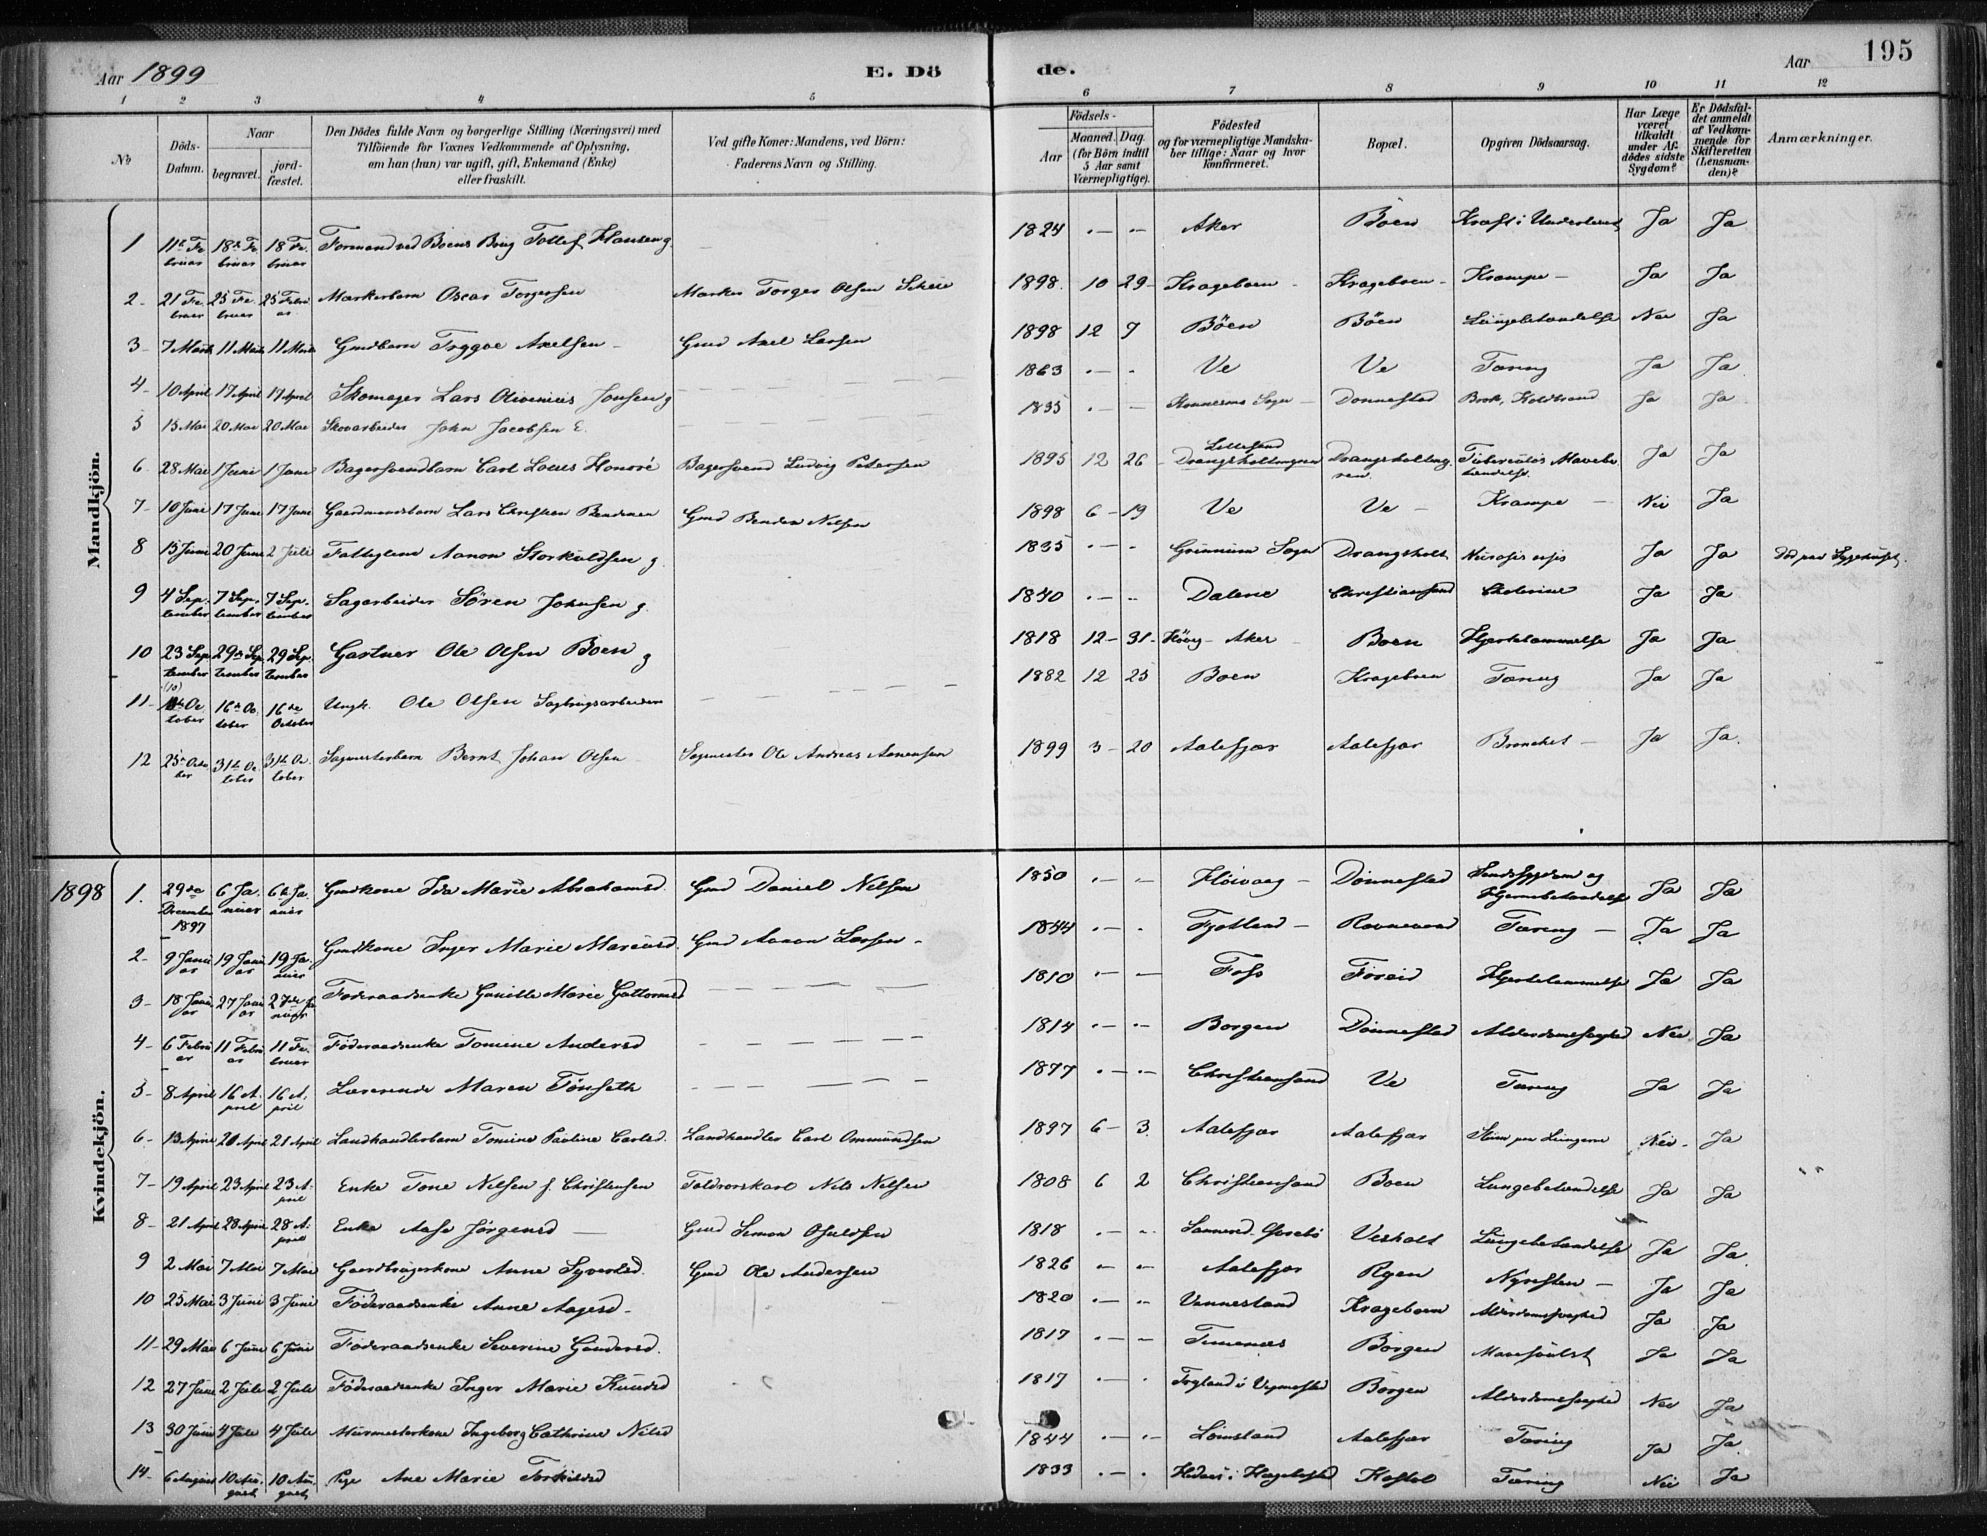 Aar 1899 E. Dö de. Aar 195
1 2 3 4 5 6 7 8 9 10 11 12
No
Döds-Datum.
Naar
begravet.
jord-fæstet.
Den Dödes fulde Navn og borgerlige Stilling (Næringsvei) med
Tilföiende for Voxnes Vedkommende af Oplysning,
om han (hun) var ugift, gift, Enkemand (Enke)
eller fraskilt.
Ved gifte Koner: Mandens, ved Börn:
Faderens Navn og Stilling.
Födsels-
Aar
Maaned. Dag.
(for Börn indtil
5 Aar samt
Værnepligtige).
Födested
og for værnepligtige Mandska-
ber tillige: Naar og hvor
konfirmeret.
Bopæl.
Opgiven Dödsaarsag.
Har Læge
været
tilkaldt
under Af-
dödes sidste
Sygdom?
Er Dödsfal-
det anmeldt
af Vedkom-
mende for
Skifteretten
(Lensman-
den)?
Anmærkninger.
Mandkjön.
1 11te Februar 18de Februar 18 Februar Formand ved Boens Brug Tollef Hansen g. 1824 Aker Boen Kræft i Underlivet Ja Ja
2 21 Februar 25 Februar 25 Februar Markerbarn Oscar Torgersen Marker Torger Olsen 1898 10 29 Krageboen Krageboen Krampe Ja Ja
3 7 Marts 11 Marts 11 Marts Gmdbarn Tryggve Axelsen Gmd Axel Larsen 1898 12 7 Böen Böen Lungebetændelse Nei Ja
4 10 April 17 April 17 April Skomager Lars Olivenius Jonsen g 1863 Ve Ve Tæring Ja Ja
5 15 Mai 20 Mai 20 Mai Skovarbeider John Jacobsen E. 1835 Sogn Donnestad Brok, Koldbrand Ja Ja
6 28 Mai 1 Juni 1 Juni Bagersvendbarn Carl Louis Honoré Bagersvend Ludvig Petersen 1895 12 26 Lillesand Drangsholtmyren Drangsholtmyren Tuberculös Mavebetændelse Ja Ja
7 10 Juni 17 Juni 17 Juni Gaardmandsbarn Lars Christian Bendixen Gmd Bendix Nilsen 1898 6 19 Ve Ve Krampe Nei Ja
8 15 Juni 20 Juni 2 Juli Fattiglem Aanon Storkuldsen g. 1835 Sogn Drangsholt Ja Ja Död paa Sygehuset.
9 4 September 7 September 7 September Sagarbeider Sören Johnsen g. 1840 Dalene Christianssand Cholerine Ja Ja
10 23 September 29de September 29 September Gartner Ole Olsen Boen g 1818 12 31 Aker Boen Hjertelammelse Ja Ja
11 (10) October 16de October 16de October Ungk. Ole Olsen Sagbrugsarbeider 1882 12 25 Boen Krageboen Tæring Ja Ja
12 25de October 31te October 31te October Sagmesterbarn Bernt Johan Olsen Sagmester Ole Andreas Aanensen 1899 3 20 Aalefjær Aalefjær Bronchit Ja Ja
Kvindekjön.
1898
1. 29de December 1897 6 Januar 6te Januar Gmdkone Ida Marie Abrahamsd. Gmd Daniel Nilsen 1850 Höivaag Dönnestad Sindssygdom og Hjernebetændelse Ja Ja
2 9 Januar 19 Januar 19 Januar Gmdkone Inger Marie Marcusd. Gmd Aanon Larsen 1844 Fjotland Ravnevand Tæring Ja Ja
3 18 Januar 27 Januar 27de Januar Föderaadsenke Gunille Marie Guttormsd 1810 Foss Föreid Hjertelammelse Ja Ja
4 6 Februar 11 Februar 11 Februar Föderaadsenke Tomine Andersd 1814 Borgen Dönnestad Alderdomssvaghed Nei Ja
5 8 April 16 April 16 April Lærerinde Maren Tönseth 1877 Christianssand Ve Tæring Ja Ja
6 13 April 21 April 21 April Landhandlerbarn Tomine Pauline Carlsd. Landhandler Carl Ommundsen 1897 6 3 Aalefjær Aalefjær Sliim paa Lungerne Nei Ja
7 19 April 23 April 23 April Enke Tone Nilsen f. Christensen Toldrorskarl Nils Nilsen 1808 6 2 Christianssand Boen Lungebetændelse Ja Ja
8 21 April 28 April 28 April Enke Aase Jörgensd Gmd Simon Osuldsen 1818 Vesholt Lungebetændelse Ja Ja
9 2 Mai 7 Mai 7 Mai Gaardbrugerkone Anne Syvertsd. Gmd Ole Andersen 1826 Aalefjær Ryen Nyresten Ja Ja
10 25 Mai 3 Juni 3 Juni Föderaadsenke Anne Aagesd 1820 Vennesland Krageboen Alderdomssvaghed Ja Ja
11 29 Mai 6 Juni 6 Juni Föderaadsenke Severine Gundersd. 1817 Timenes Borgen Mavesvulst Ja Ja
12 27 Juni 2 Juli 2 Juli Föderaadsenke Inger Marie Knudsd 1817 Borgen Alderdomssvaghed Nei Ja
13 30 Juni 4 Juli 4 Juli Murmesterkone Ingeborg Cathrine Nilsd 1844 Lömsland Aalefjær Tæring Ja Ja
14 6 August 10 August 10 August Pige Ane Marie Torkildsd 1833 Kostöl Tæring Nei Ja